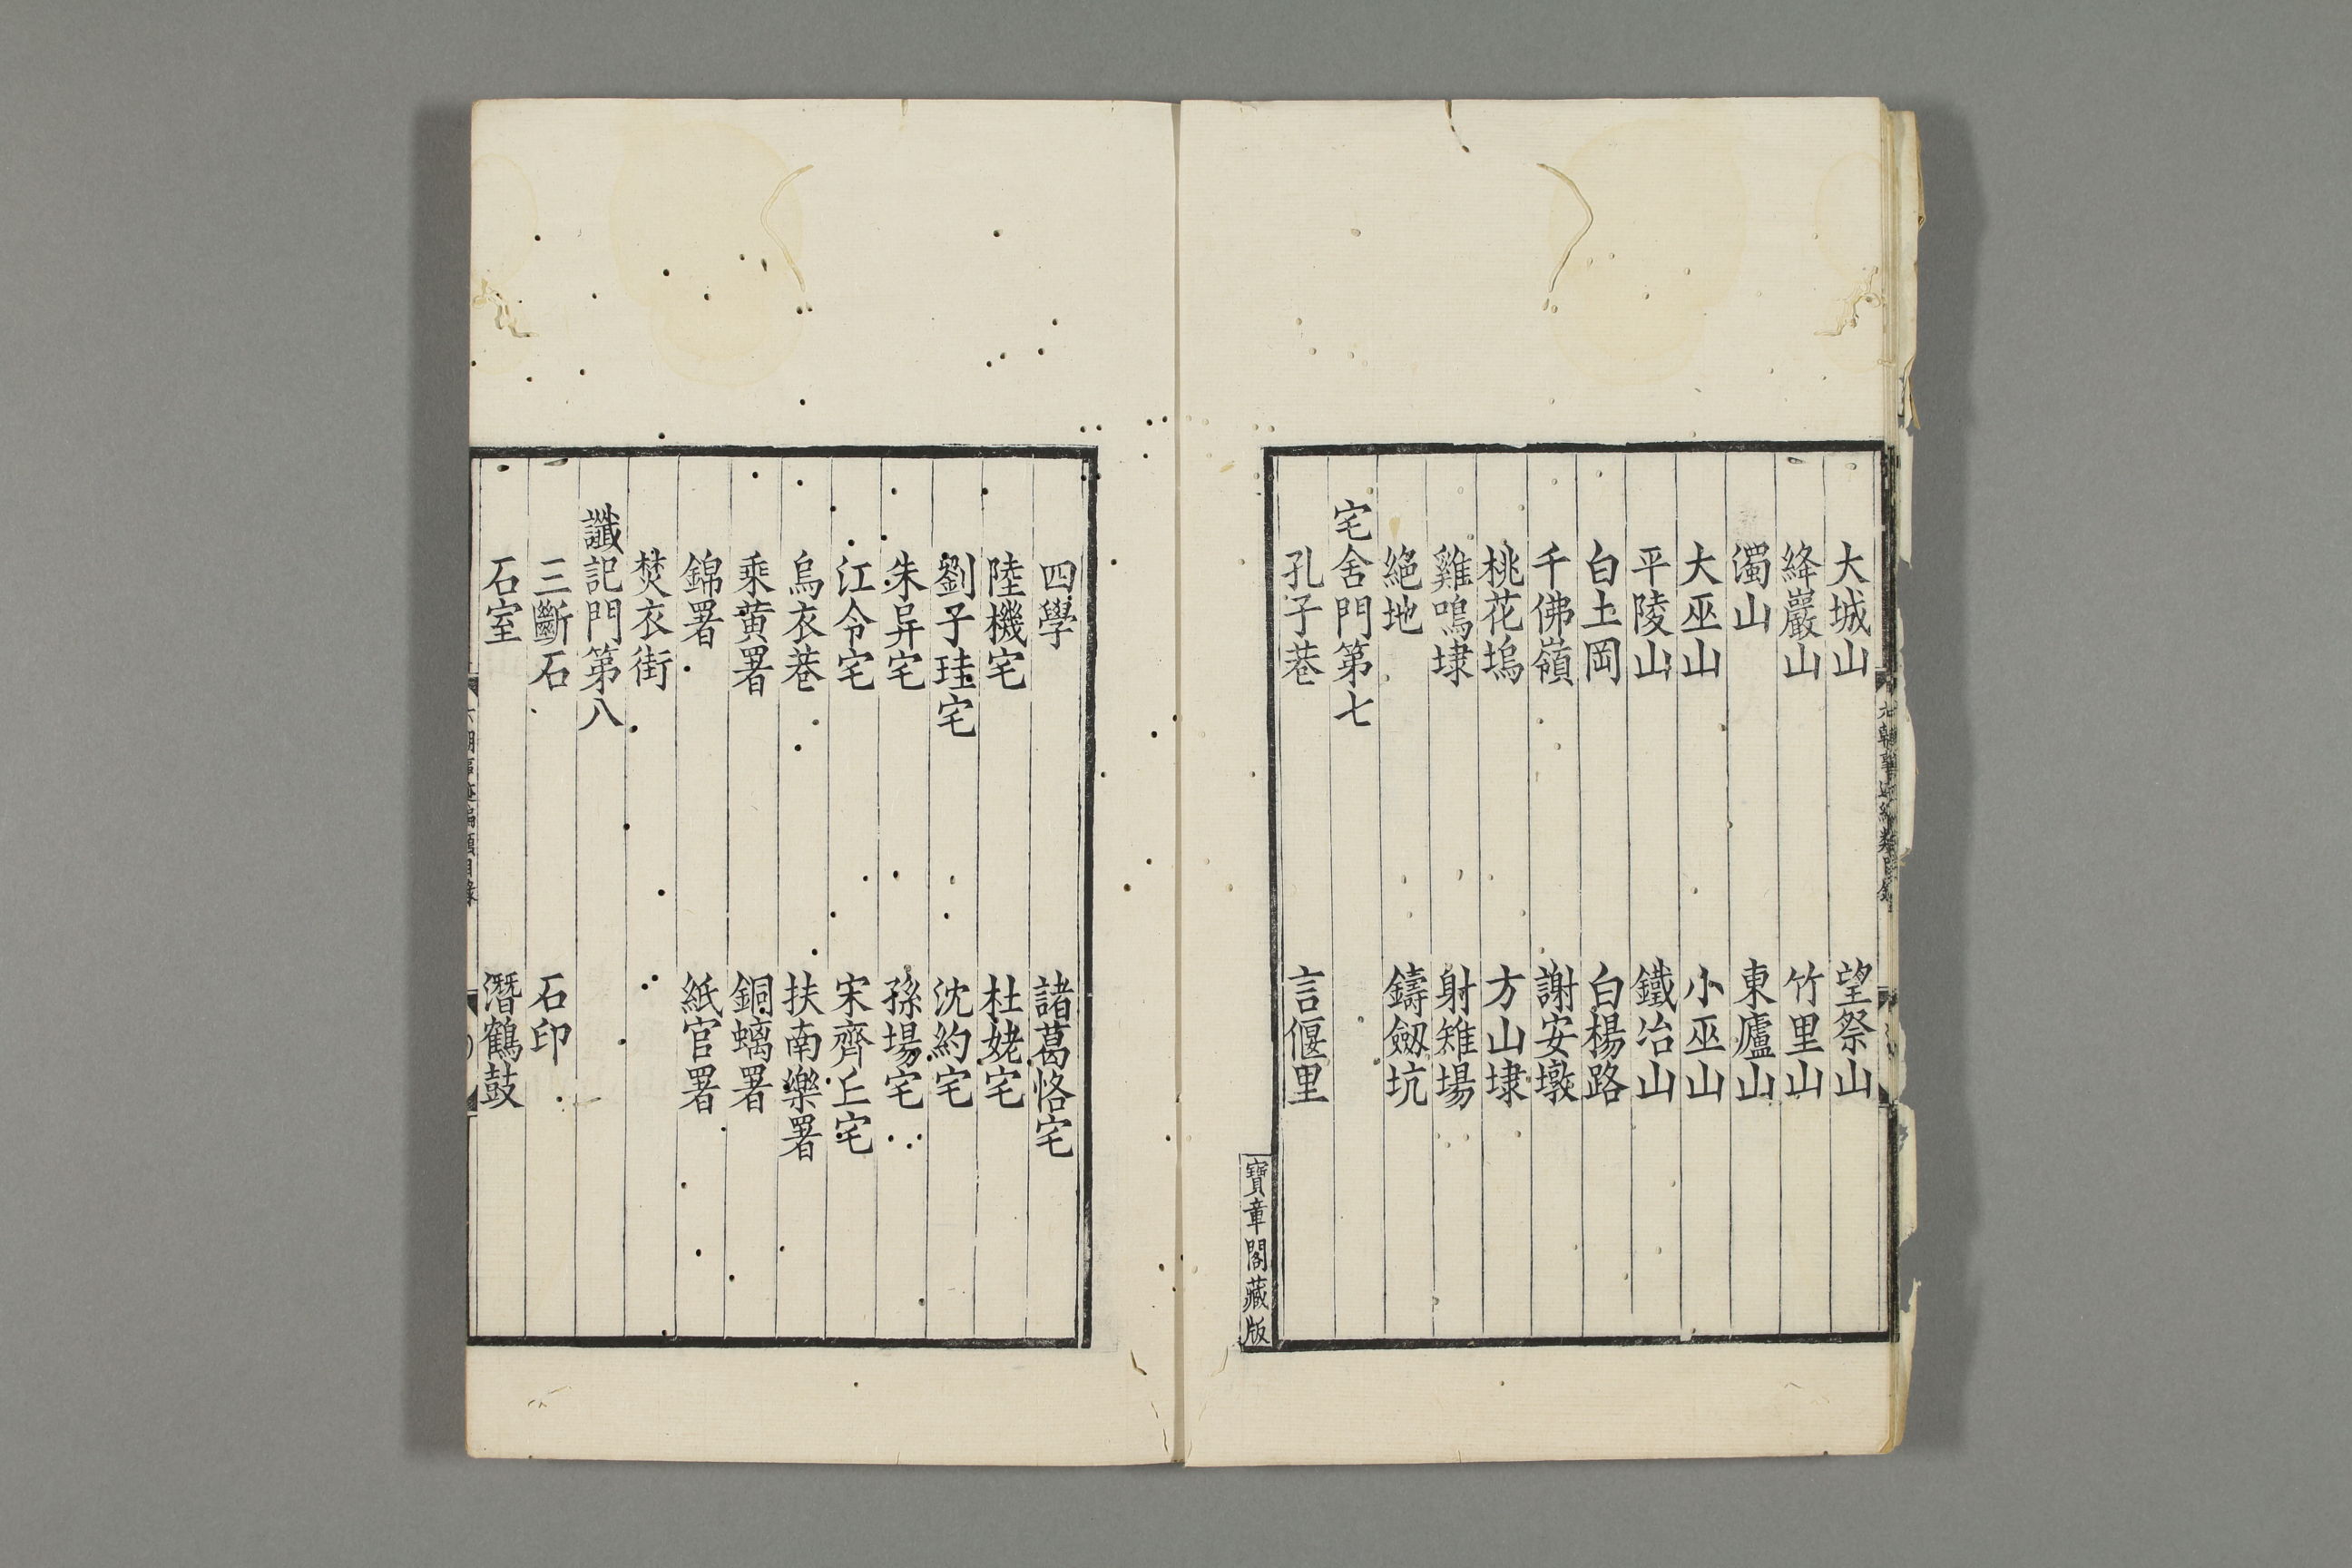 大城山　望祭山
絳巖山　竹里山
濁山　東廬山
大巫山　小巫山
平陵山　鐵冶山
白土岡　白楊路
千佛嶺　謝安墩
桃花塢　方山埭
雞鳴埭　射雉場
絕地　鑄劒坑
宅舍門第七
孔子巷　言偃里
寶章閣藏版
四學　諸葛恪宅
陸機宅　杜姥宅
劉子珪宅　沈約宅
朱异宅　孫瑒宅
江令宅　宋齊丘宅
烏衣巷　扶南樂署
乘黃署　銅螭署
錦署　紙官署
焚衣街
讖記門第八
三斷石　石印
石室　潛鶴鼓